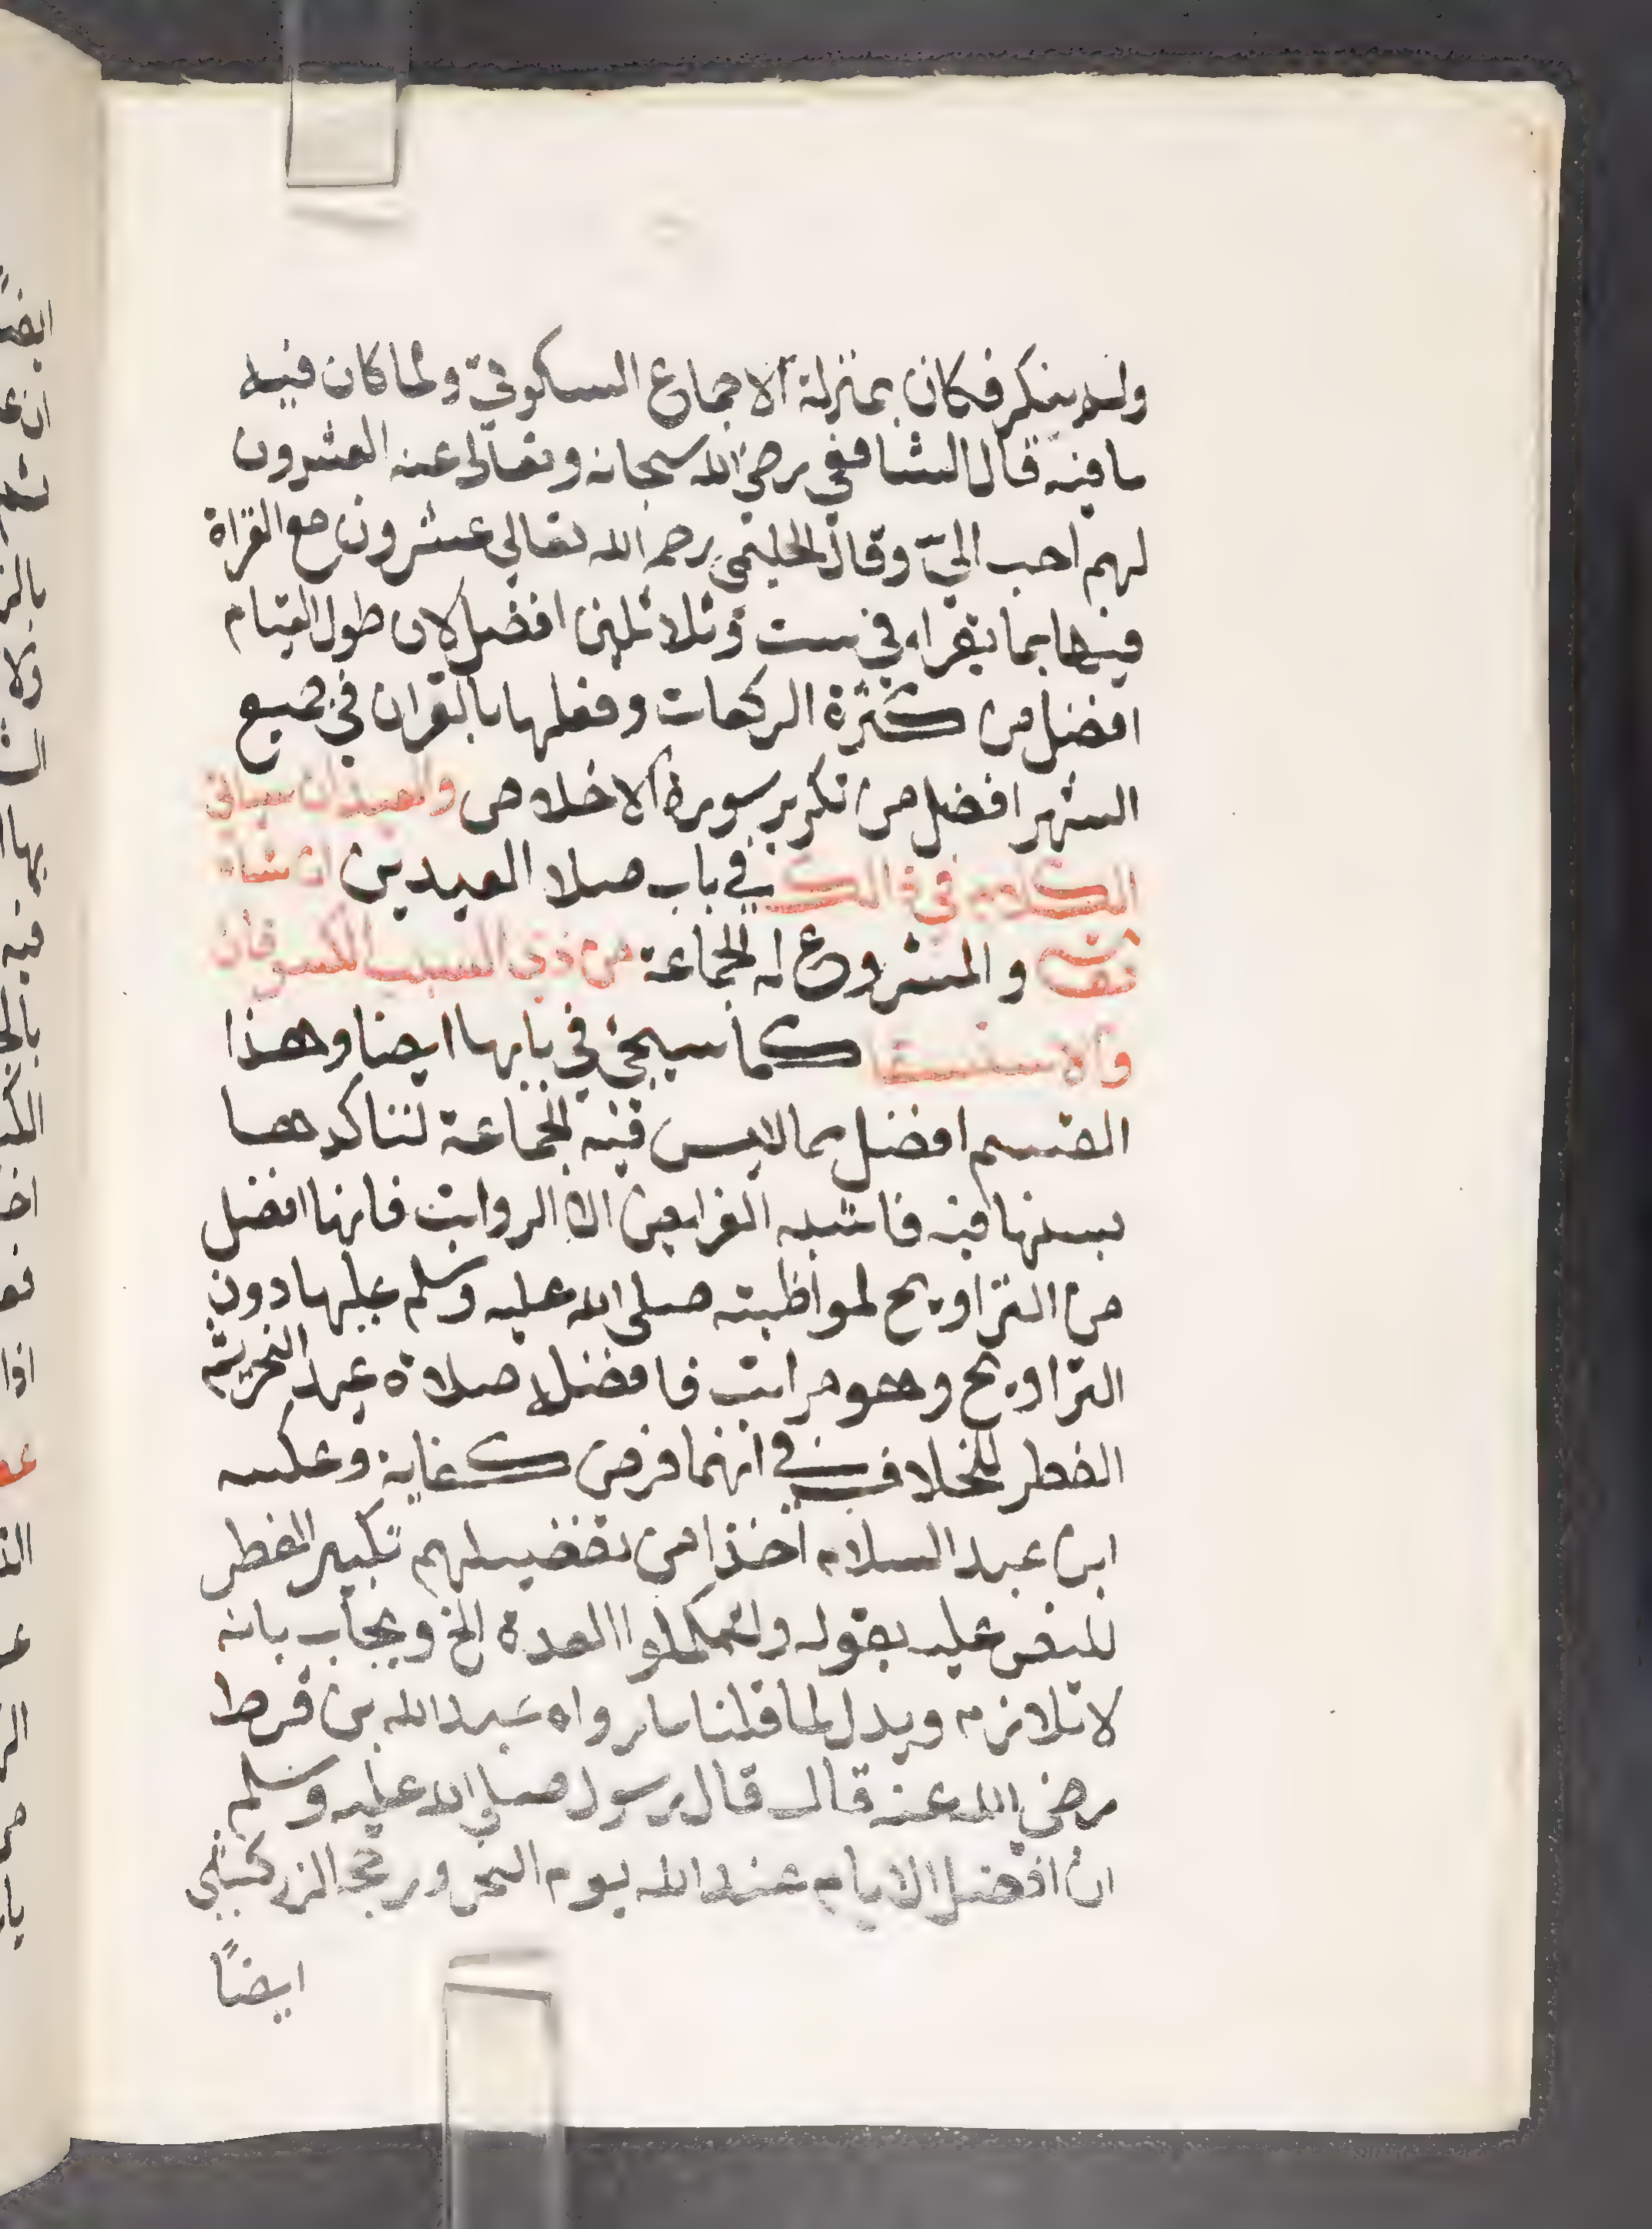 ولم ينكر فكان بمنزلة الاجماع السكوتيّ ولما كان فيه
ما فيه قال الشافعي رضي الله سبحانه وتعالى عنه العشرون
لهم احب اليّ وقال الحليمى رحمه الله تعالى عشرون مع القراة
فيها بما يقراه في ست وثلاثين افضل لان طول القيام
افضل من كثرة الركعات وفعلها بالقران في جميع
الشهر افضل من تكرير سورة الاخلاص والعيدان سياتي
الكلام في ذالك في باب صلاة العيدين ان شاء
والمشروع له الجماعة من ذي السبب الكسوفان
والاستسقا كما سيجئ في بابها ايضا وهذا
القسم افضل مما لايس فيه الجماعة لتاكدها
بسنها فيه فاشبه الفرايض الا الرواتب فانها افضل
من التراويح لمواظبته صلى الله عليه وسلم عليها دون
التراويح وهو مراتب فافضله صلاة عيد النحر ثم
الفطر للخلاف في انهما فرض كفاية وعكسه
ابن عبد السلام اخذا من تفضيلهم تكبير الفطر
للنص عليه بقوله ولتكملوا العدة الخ ويجاب بانه
لا تلازم ويدل لما قلنا ما رواه عبد الله بن قرط
رضي الله عنه قال قال رسول صلى الله عليه وسلم
ان افضل الايام عند الله يوم النحر ورجح الزركشي
ايضًا